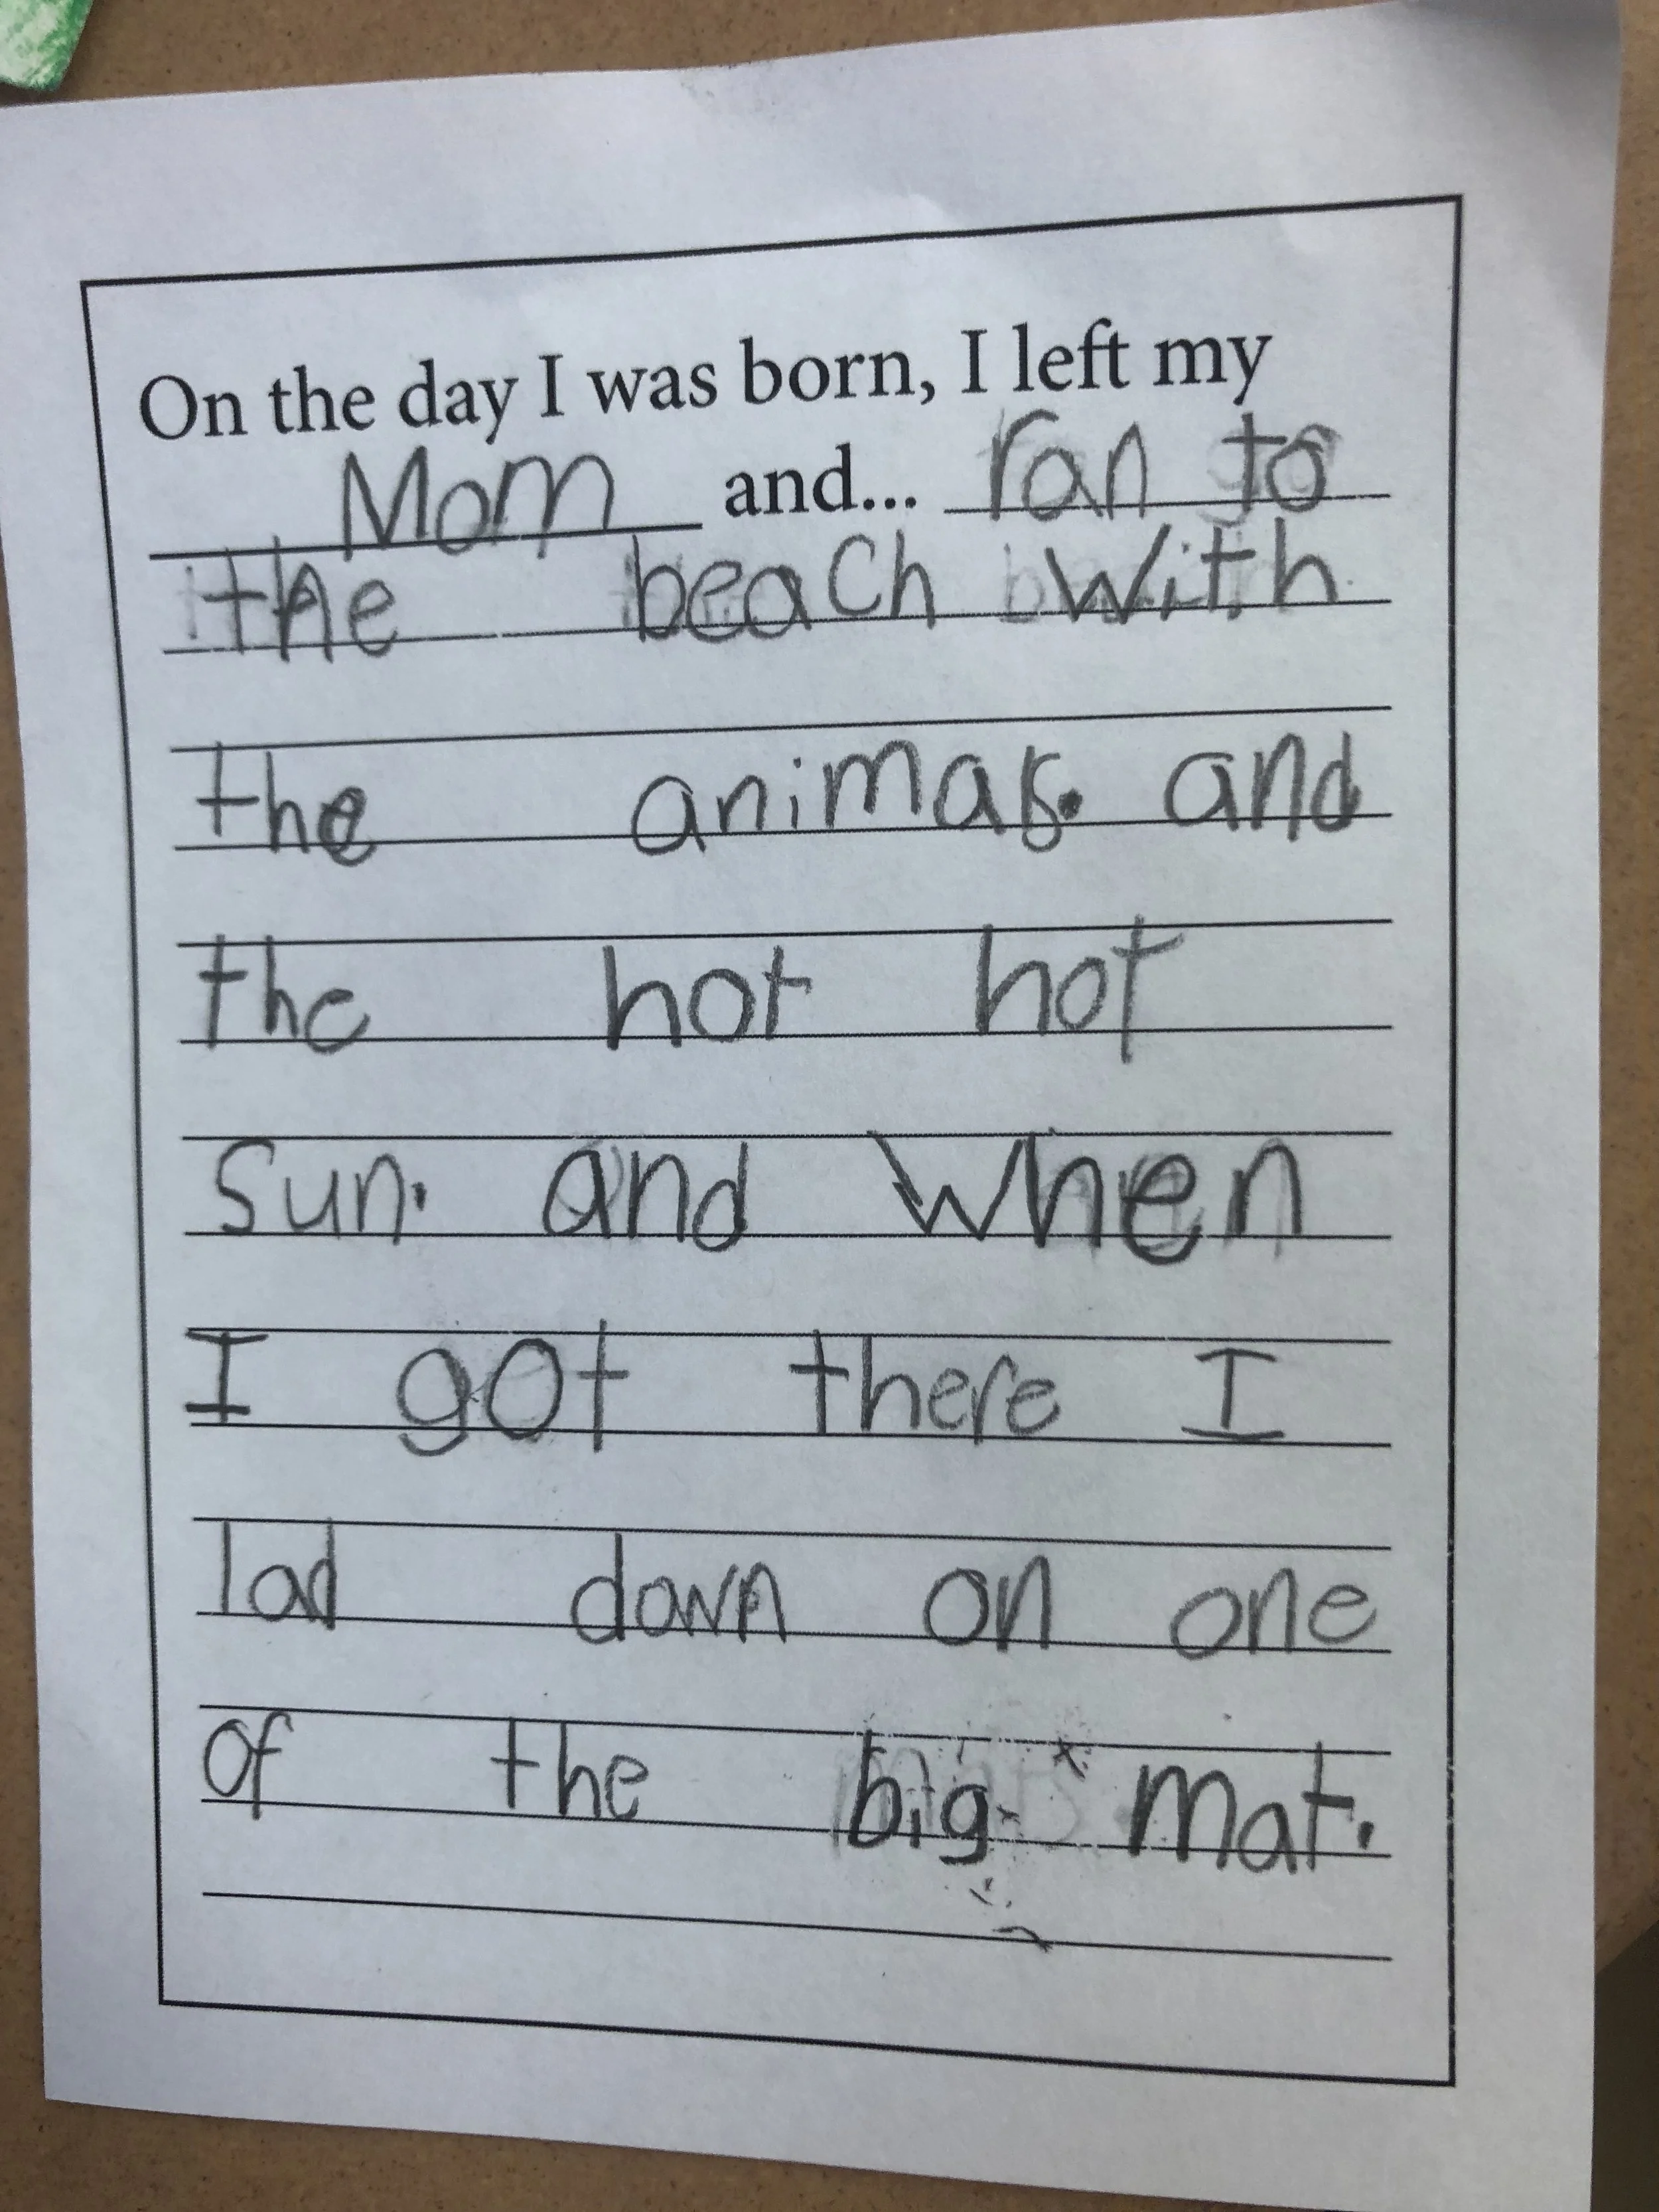 On the day I was born, I left my
Mom and... ran to
the beach with
the animals. and
the hot hot
sun. and when
I got there I
lad down on one
of the big mat.